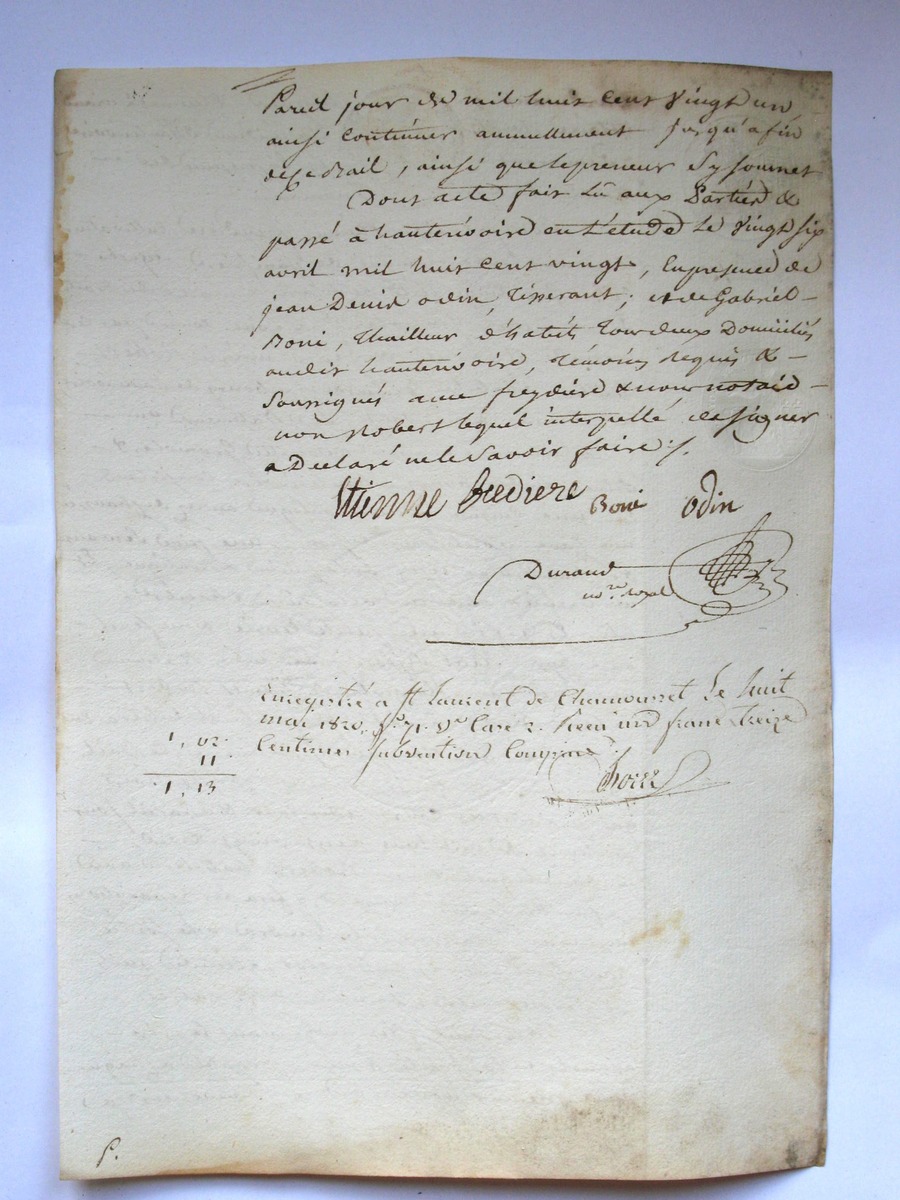 Pareil jour de mil huit cent vingt un
ainsi continuer annuellement jusqu'a fin
de ce Bail, ainsi que le preneur s'y soumet
Dont acte fait lû aux Parties &
passé à hauterivoire en l'étude Le vingt six
avril mil huit cent vingt, En presence de
jean Denis odin, Tisserant, et de Gabriel
Boni, thailleur d'habits tous deux Domiciliés
audit hauterivoire, témoins requis &
Soussignés avec freydiere & nous notaire
non Robert lequel interpellé de signer
a Declaré ne le Savoir faire ./.
Ettienne frediere Boni Odin
Durand
no.re royal
Enregistré a St Laurent de Chamousset Le huit
mai 1820, f.o 71. V.o Case 2. Reçu un franc treize
Centimes subvention Comprise.
1, 02.
11
1, 13
P.